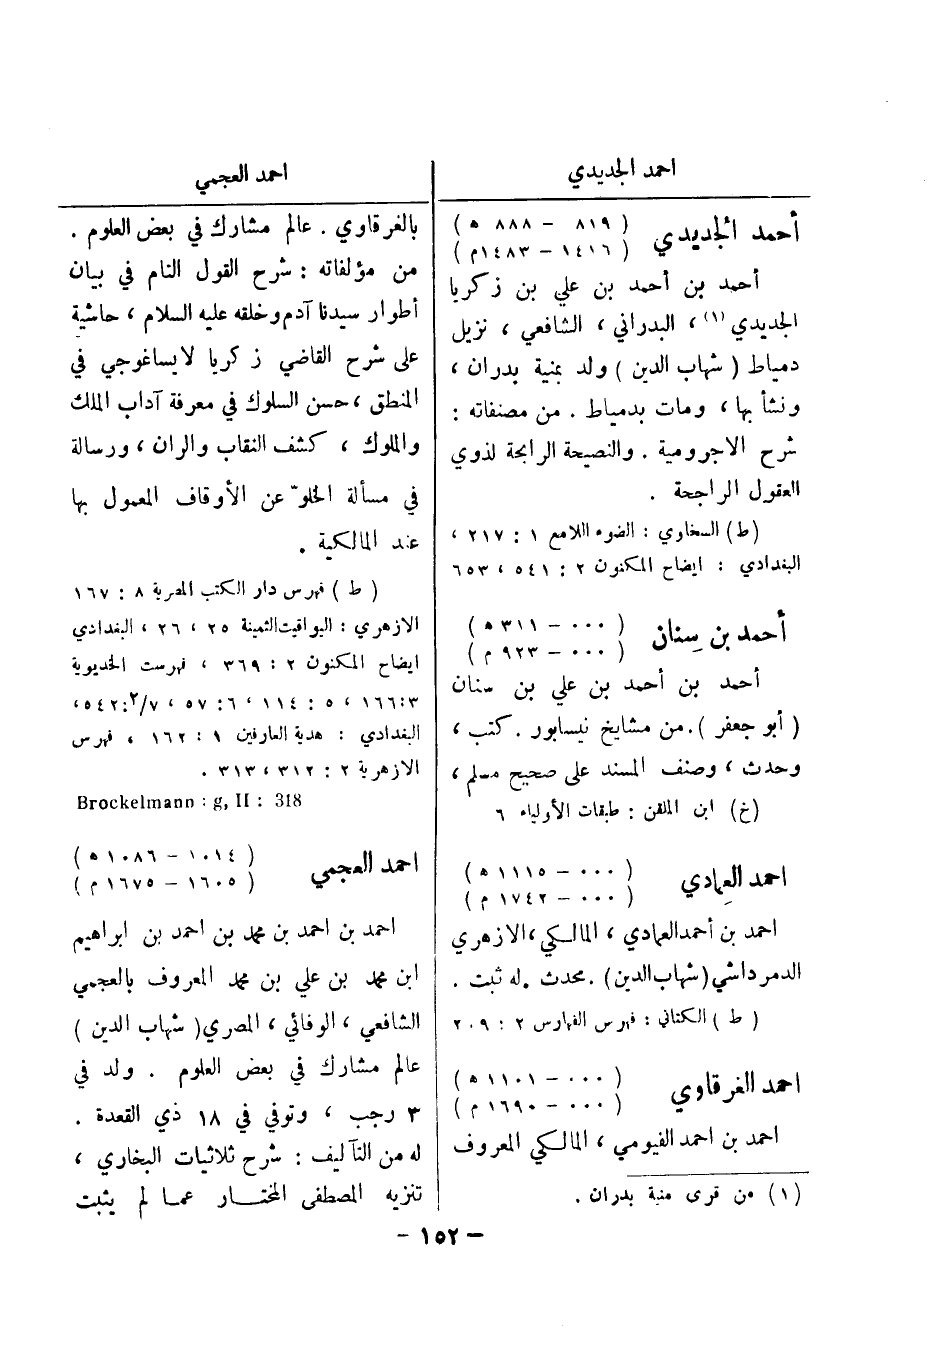 احمد الجديدي
أحمد الجديدي ( ٨١٩ – ٨٨٨ ه )
( ١٤١٦ – ١٤٨٣م )
أحمد بن أحمد بن علي بن زكريا
الجديدي (١) ، البدراني ، الشافعي ، نزيل
دمياط ( شهاب الدين ) ولد بمنية بدران ،
ونشأ بها ، ومات بدمياط . من مصنفاته :
شرح الاجرومية . والنصيحة الرابحة لذوي
العقول الراجحة .
(ط) السخاوي : الضوء اللامع ١ : ٢١٧ ،
البغدادي : ايضاح المكنون ٢ : ٥٤١ ، ٦٥٣
أحمد بن سنان ( ٠٠٠ – ٣١١ ه )
( ٠٠٠ – ٩٢٣ م )
أحمد بن أحمد بن علي بن سنان
( أبو جعفر ). من مشايخ نيسابور . كتب ،
وحدث ، وصنف المسند على صحيح مسلم ،
(خ) ابن الملقن : طبقات الأولياء ٦
احمد العمادي ( ٠٠٠ – ١١٥٥ ه )
( ٠٠٠ – ١٧٤٢ م )
احمد بن أحمد العمادي ، المالكي ، الازهري
الدمرداشي (شهاب الدين) . محدث . له ثبت .
( ط ) الكتاني : فهرس الفهارس ٢ : ٢٠٩
احمد الغرقاوي ( ٠٠٠ – ١١٠١ ه )
( ٠٠٠ – ١٦٩٠ م )
احمد بن احمد الفيومي ، المالكي المعروف
(١) من قرى منية بدران .
احمد العجمي
بالغرقاوي . عالم مشارك في بعض العلوم .
من مؤلفاته : شرح القول التام في بيان
أطوار سيدنا آدم وخلقه عليه السلام ، حاشية
على شرح القاضي زكريا لايساغوجي في
المنطق ، حسن السلوك في معرفة آداب الملك
والملوك ، كشف النقاب والران ، ورسالة
في مسألة الخلوّ عن الأوقاف المعمول بها
عند المالكية .
( ط ) فهرس دار الكتب المصرية ٨ : ١٦٧
الازهري : اليواقيت الثمينة ٢٥ ، ٢٦ ، البغدادي
ايضاح المكنون ٢ : ٣٦٩ ، فهرست الخديوية
٣ : ١٦٦ ، ٥ : ١١٤ ، ٦ : ٥٧ ، ٧/٢ : ٥٤٢ ،
البغدادي : هدية العارفين ١ : ١٦٢ ، فهرس
الازهرية ٢ : ٣١٢ ، ٣١٣ .
Brockelmann : g, II : 318
احمد العجمي ( ١٠١٤ – ١٠٨٦ ه )
( ١٦٠٥ – ١٦٧٥ م )
احمد بن احمد بن محمد بن احمد بن ابراهيم
ابن محمد بن علي بن محمد المعروف بالعجمي
الشافعي ، الوفائي ، المصري ( شهاب الدين )
عالم مشارك في بعض العلوم . ولد في
٣ رجب ، وتوفي في ١٨ ذي القعدة .
له من التآليف : شرح ثلاثيات البخاري ،
تنزيه المصطفى المختار عما لم يثبت
– ١٥٢ –